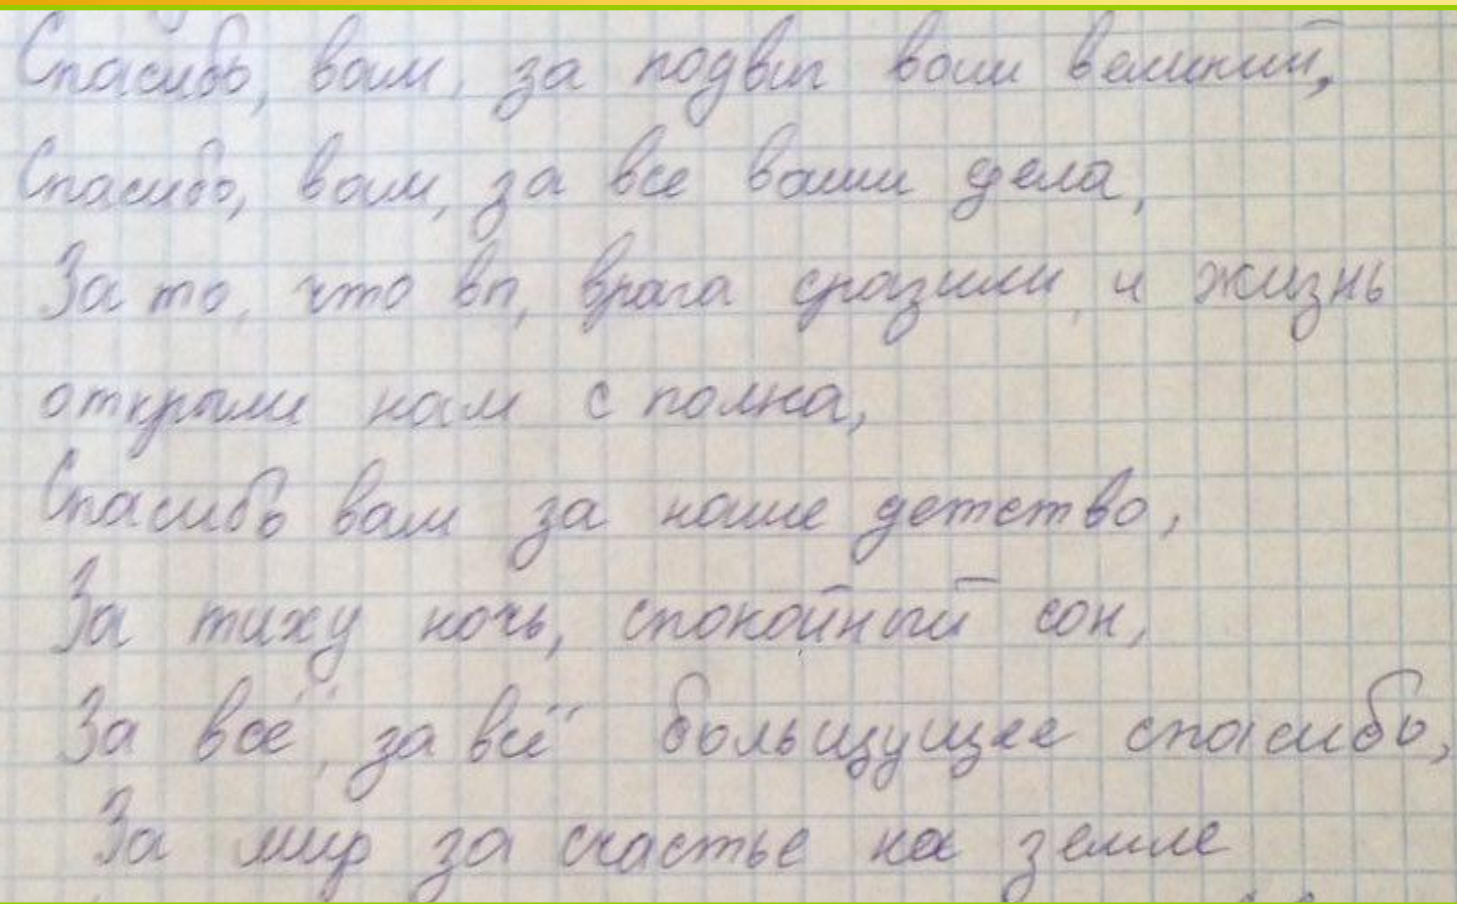 Спасибо, вам, за подвиг ваш великий,
Спасибо, вам, за все ваши дела,
За то, что вп, врага сразили, и жизнь
открыли нам с полна,
Спасибо вам за наше детство,
За тиху ночь, спокойный сон,
За всё, за всё больщущее спасибо,
За мир за счастье на земле